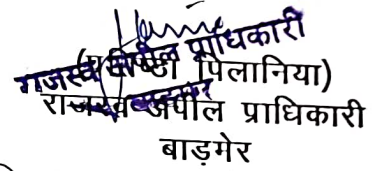 राजस्व अपील प्राधिकारी
पिलानिया)
राजस्व अपील प्राधिकारी
बाड़मेर